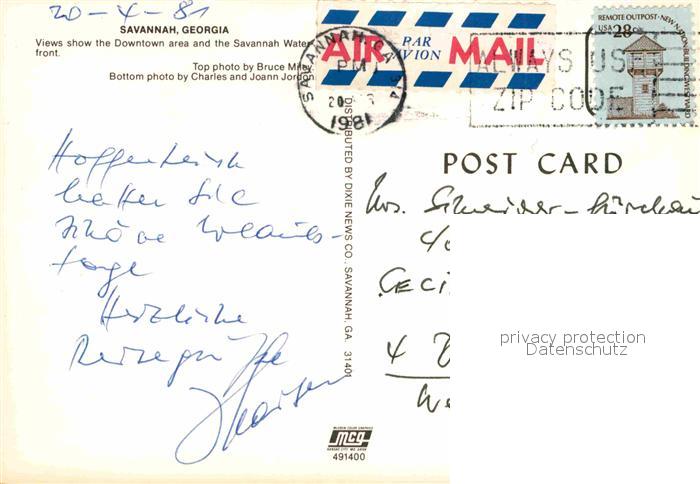 20-4-81
SAVANNAH, GEORGIA
Views show the Downtown area and the Savannah Water
front.
Top photo by Bruce
Bottom photo by Charles and Joann Jordon
AIR PAR AVION MAIL
SAVANNAH, GA 314
PM
20
1981
ALWAYS USE
ZIP CODE
REMOTE OUTPOST
USA 28c
DISTRIBUTED BY DIXIE NEWS CO., SAVANNAH, GA. 31401
POST CARD
Hoffentlich
hatten Sie
schöne Urlaubs-
tage
Herzliche
Reisegrüße
Mrs. Schneider-
c/o
CECI
4
We
privacy protection
Datenschutz
mcg
491400